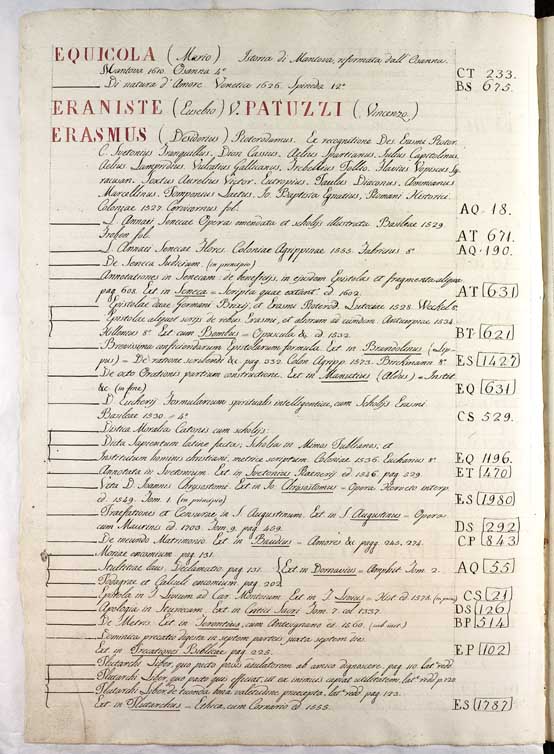 EQUICOLA (Mario) Istoria di Mantova, riformata dall' Osanna.
Mantova 1610. Osanna 4° CT 233.
Di natura d'Amore Venetia 1626. Spineda 12° BS 675.
ERANISTE (Eusebio) V. PATUZZI (Vincenzo)
ERASMUS (Desiderius) Roterodamus. Ex recognitione Des. Erasmi Roter.
C. Svetonius Tranquillus, Dion Cassius, Aelius Spartianus, Iulius Capitolinus,
Aelius Lampridius Vulcatius Gallicanus, Trebellius Pollio, Flavius Vopiscus Sy-
racusan. Sextus Aurelius Victor, Eutropius, Paulus Diaconus, Ammianus
Marcellinus, Pomponius Laetus, Io. Baptista Egnatius, Romani Historici.
Coloniae 1527 Cervicornus fol. AQ 18.
L. Annaei Senecae Opera emendata et scholijs illustrata. Basileae 1529.
Froben fol. AT 671.
L. Annaei Senecae Flores. Coloniae Agrippinae 1555. Fabricius 8° AQ 190.
De Seneca Judicium. (in principio)
Annotationes in Senecam de beneficijs, in ejusdem Epistolas et fragmenta aliqua
pag. 608. Ext. in Seneca = Scripta quae extant. id 1602. AT [631]
Epistolae duae Germani Brixij, et Erasmi Roterod. Lutetiae 1528. Wechel 8°
Epistolae aliquot sorijs de rebus Erasmi, et aliorum ad eundem. Antuerpiae 1534.
Hillenius 8° Ext. cum Bembus = Opuscula &c id 1532. BT [621]
Brevissima conficiendarum Epistolarum formula. Ext. in Brandolinus (Lip-
pus) = De ratione scribendi &c pag. 332. Colon. Agripp. 1573. Birckmann 8° ES [1427]
De octo Orationis partium constructione. Ext. in Manutius (Aldus) = Instit.
&c (in fine) EQ [631]
D. Eucherij Formularium spiritualis intelligentiae, cum Scholijs Erasmi
Basileae 1530. = 4° CS 529.
Disticha Moralia Catonis cum scholijs:
Dicta Sapientum latine facta; Scholia in Mimos Publianos, et
Institutum hominis christiani, metrice scriptum. Coloniae 1536. Eucharius 8° EQ 1196.
Annotata in Svetonium. Ext. in Svetonius Raenerij id 1546. pag. 229 ET [470]
Vita D. Joannis Chrysostomi. Ext. in Io. Chrysostomus = Opera Herveto interp.
id. 1549. Tom. 1. (in principio) ES [1980]
Praefationes et Censurae in S. Augustinum. Ext. in S. Augustinus = Opera
cum Maurinis id 1703. Tom. 9. pag. 459. DS [292]
De incundo Matrimonio Ext. in Baudius = Amores &c pagg. 245. 274. CP [843]
Moriae encomium pag. 131.
Stultitiae laus, Declamatio pag. 131. { Ext. in Dornavius = Amphit. Tom. 2. AQ [55]
Podagrae et Calculi encomium pag. 202
Epistola in T. Livium ad Car. Montivium. Ext. in T. Livius = Hist. id 1578. (in princ.) CS [21]
Apologia in Stunicam. Ext. in Critici Sacri Tom. 7. col. 1337. DS [126]
De Metris. Ext. in Terentius, cum Antesignano id. 1560. BP [514]
Dominica precatio digesta in septem partes juxta septem dies
Ext. in Precationes Biblicae pag. 225. EP [102]
Plutarchi Liber, quo pacto possis adulatorem ab amico dignoscere, pag. 110. lat. redd.
Plutarchi Liber, quo pacto quis efficiat, ut ex inimicis capiat utilitatem, lat. redd. p. 120
Plutarchi Liber, de tuenda bona valetudine praecepta, lat. redd. pag. 123.
Ext. in Plutarchus = Ethica, cum Cornario id 1555. ES [1787]